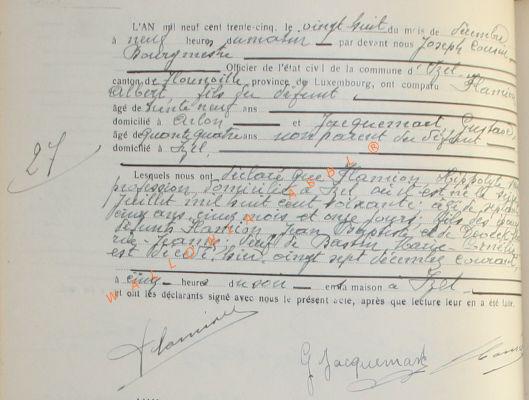 L'AN mil neuf cent trente-cinq, le vingt huit du mois de décembre
à neuf heures du matin par devant nous Joseph
Bourgmestre
Officier de l'état civil de la commune d'Izel
canton de Florenville, province de Luxembourg, ont comparu Flamion
Albert fils du défunt
âgé de trente neuf ans
domicilié à Arlon et Jacquemart Gustave
âgé de quarante quatre ans non parent du défunt
domicilié à Izel
27
Lesquels nous ont déclaré que Flamion, Hippolyte
profession, domicilié à Izel où il est né le
juillet mil huit cent soixante âgé de septante
cinq ans cinq mois et onze jours, fils des
défunts Flamion Jean Baptiste et de
veuf de Marie
est décédé hier vingt sept décembre courant
à cinq heures du soir en sa maison à Izel
et ont les déclarants signé avec nous le présent acte, après que lecture leur en a été faite.
Flamion
G Jacquemart
WALLONIA ASBL ®